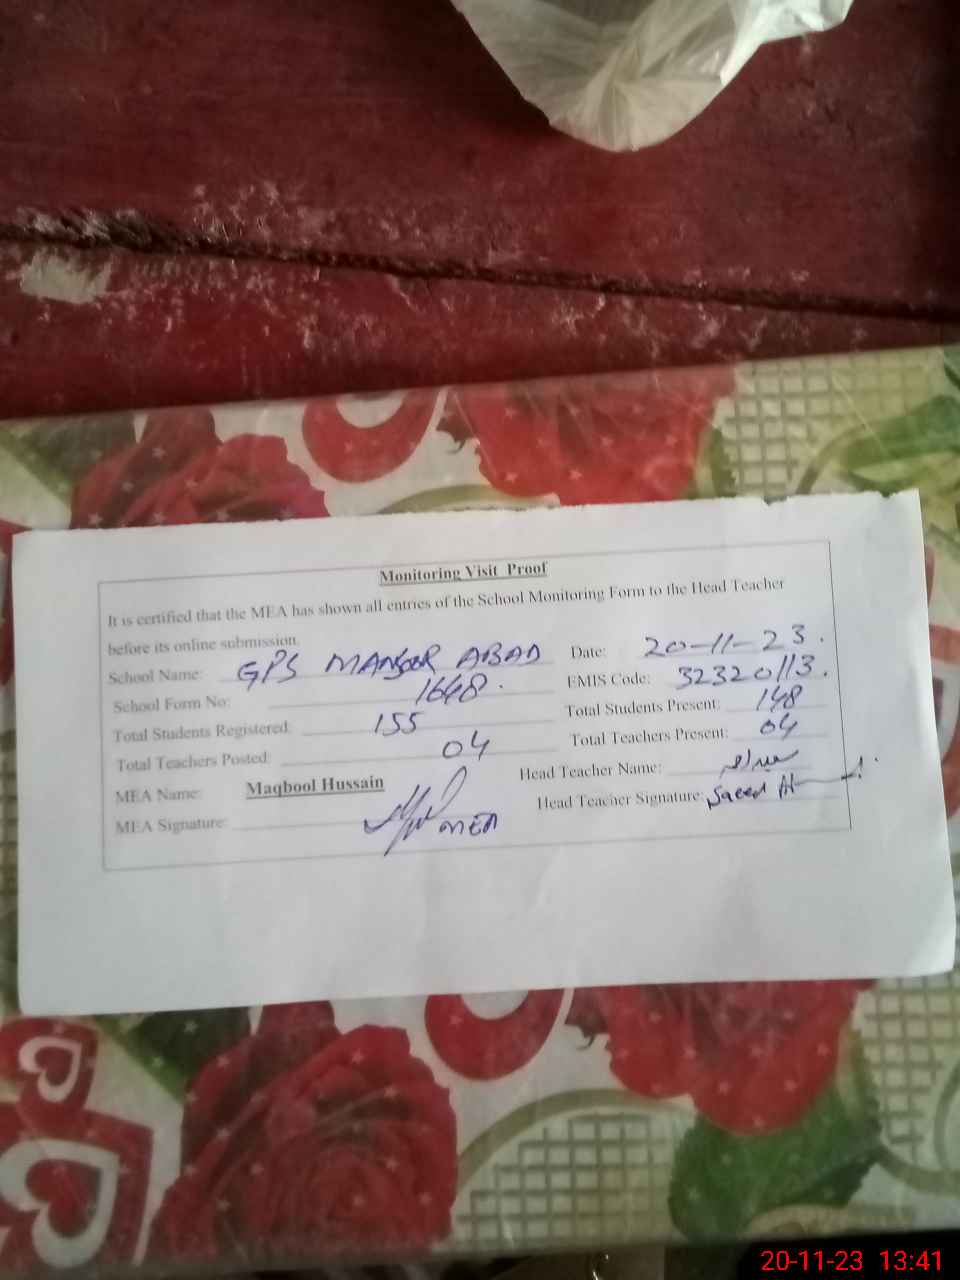 Monitoring Visit Proof
It is certified that the MEA has shown all entries of the School Monitoring Form to the Head Teacher
before its online submission.
School Name: GPS MANSOOR ABAD Date: 20-11-23.
School Form No: 1648. EMIS Code: 32320113.
Total Students Registered: 155 Total Students Present: 148
Total Teachers Posted: 04 Total Teachers Present: 04
MEA Name: Maqbool Hussain Head Teacher Name:
MEA Signature: MEA Head Teacher Signature: Saeed
20-11-23 13:41